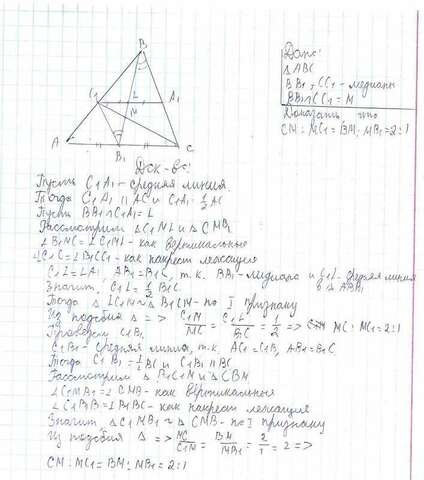 B
C₁
L
A₁
M
A
B₁
C
Дано:
Δ ABC
BB₁, CC₁ - медианы
BB₁∩CC₁ = M
Доказать, что
CM:MC₁=BM:MB₁=2:1
Док-во:
Пусть C₁A₁ - средняя линия.
Тогда C₁A₁ || AC и C₁A₁ = 1/2 AC
Пусть BB₁∩C₁A₁ = L
Рассмотрим Δ C₁ML и Δ CMB₁
как вертикальные
как накрест лежащие
C₁L = LA₁, AB₁=B₁C, т.к. BB₁ - медиана и C₁L - средняя линия
в Δ ABB₁
Значит, C₁L = 1/2 B₁C
Тогда Δ LC₁M ~ Δ B₁CM - по I признаку
Из подобия Δ => C₁M/MC = C₁L/B₁C = 1/2 => MC:MC₁=2:1
Проведём C₁B₁.
C₁B₁ - средняя линия, т.к. AC₁=C₁B, AB₁=B₁C
Тогда C₁B₁ = 1/2 BC и C₁B₁ || BC
Рассмотрим Δ B₁C₁M и Δ CBM
∠C₁MB₁ = ∠CMB - как вертикальные
как накрест лежащие
Значит Δ C₁MB₁ ~ Δ CMB - по I признаку
Из подобия Δ => MC/C₁M = BM/MB₁ = 2/1 = 2 =>
CM:MC₁=BM:MB₁=2:1